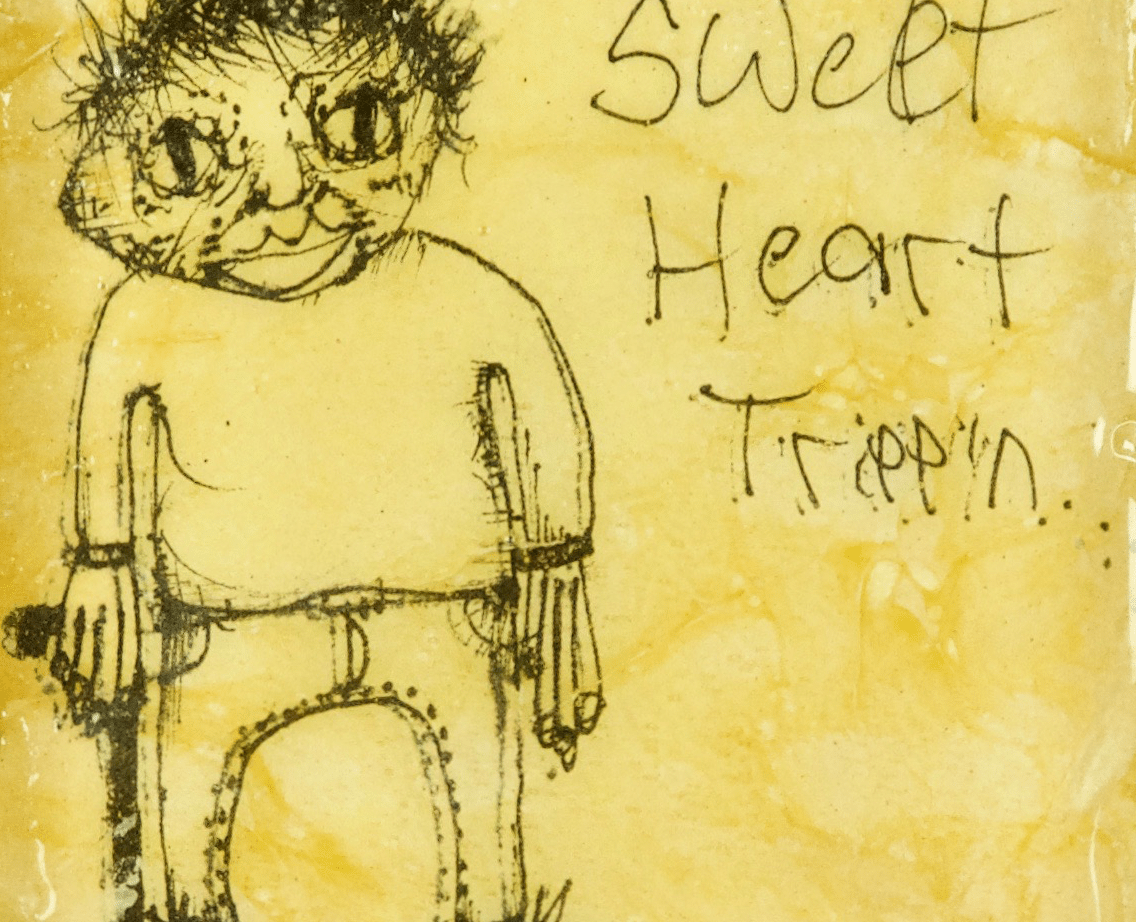 Sweet
Heart
Trippin...